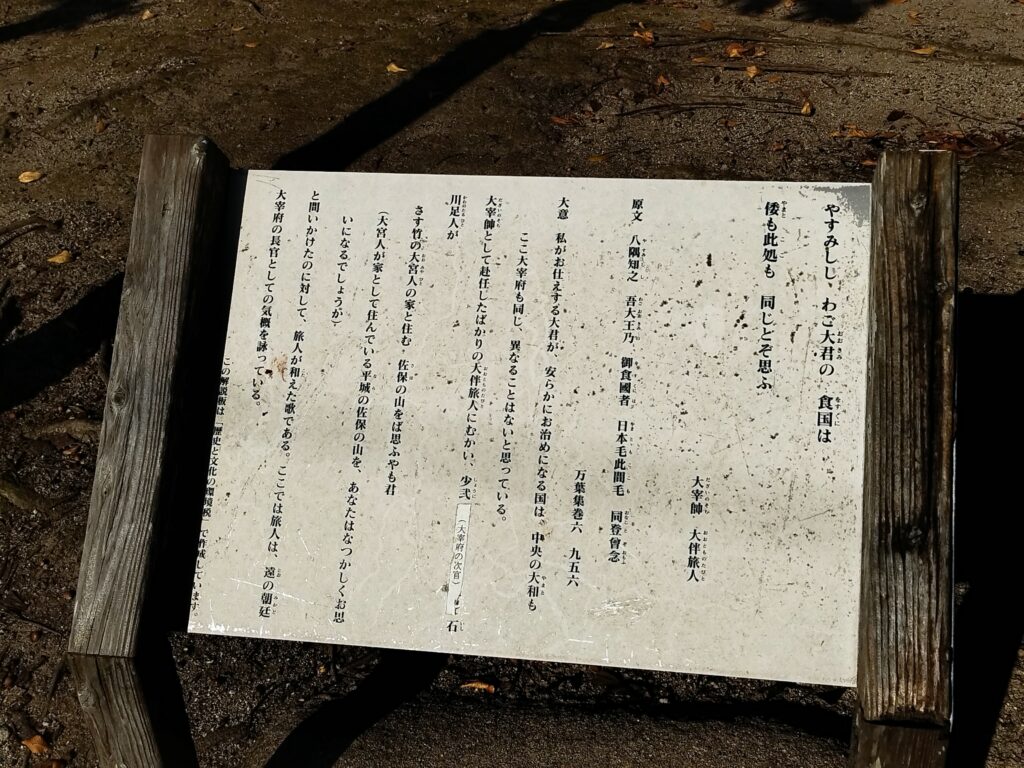 やすみしし、わご大君の　食国は
倭も此処も　同じとぞ思ふ
大宰帥　大伴旅人
原文　八隅知之　吾大王乃　御食國者　日本毛此間毛　同登曾念
万葉集巻六　九五六
大意　私がお仕えする大君が、安らかにお治めになる国は。中央の大和も
ここ大宰府も同じ、異なることはないと思っている。
大宰帥として赴任したばかりの大伴旅人にむかい、少弐（大宰府の次官）石
川足人が
さす竹の大宮人の家と住む　佐保の山をば思ふやも君
（大宮人が家として住んでいる平城の佐保の山を、あなたはなつかしくお思
いになるでしょうか）
と問いかけたのに対して、旅人が和えた歌である。ここでは旅人は、遠の朝廷
大宰府の長官としての気概を詠っている。
この解説板は「歴史と文化の環境税」で作成しています。